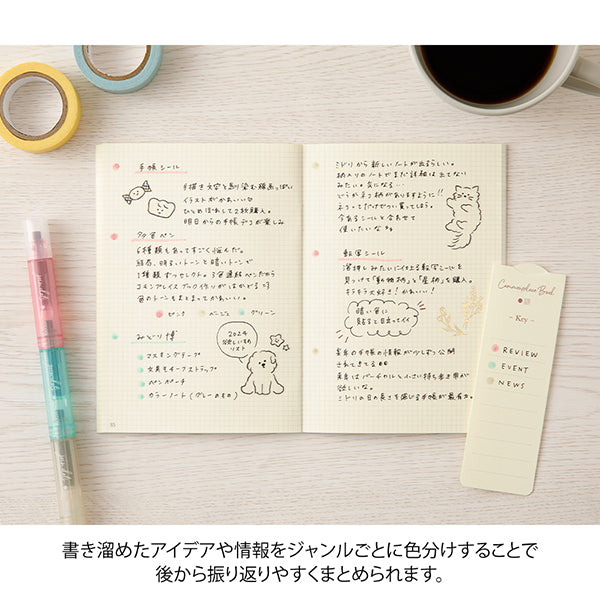 手帳シール
手描き文字と馴染む線画っぽい
イラストがかわいい
ひとめぼれして2枚購入。
明日からの手帳デコが楽しみ
多色ペン
6種類もあってすごく悩んだ。
結局、明るいトーンと暗いトーンで
1種類ずつセレクト。3色連結ペンだから
コモンプレイスブック作りがはかどる
色のトーンもまとまってかわいい。
ピンク ベージュ グリーン
みどり博
マスキングテープ
文具モチーフストラップ
ペンポーチ
カラーノート(グレーのもの)
2024
欲しいもの
リスト
55
ミドリから新しいノートが出るらしい。
柄入りのノートでまだ詳細は出てない
みたい。気になる…
どうやらネコ柄がありますように!!
ネコってだけでつい買ってしまう。
今あるシールと合わせて
使いたいなぁ。
転写シール
気になっていた転写シールを
見つけて「動物柄」と「星柄」を購入。
キラキラ大好き!かわいい!
暗い色に
貼ると目立ってイイ
来年の手帳の情報が少しずつ公開
されてきてる
来年はバーチカルと小さい持ち歩き用が
欲しいな。
ミドリの日の長さを感じる手帳が最有力。
Commonplace Book
- Key -
REVIEW
EVENT
NEWS
書き溜めたアイデアや情報をジャンルごとに色分けすることで
後から振り返りやすくまとめられます。